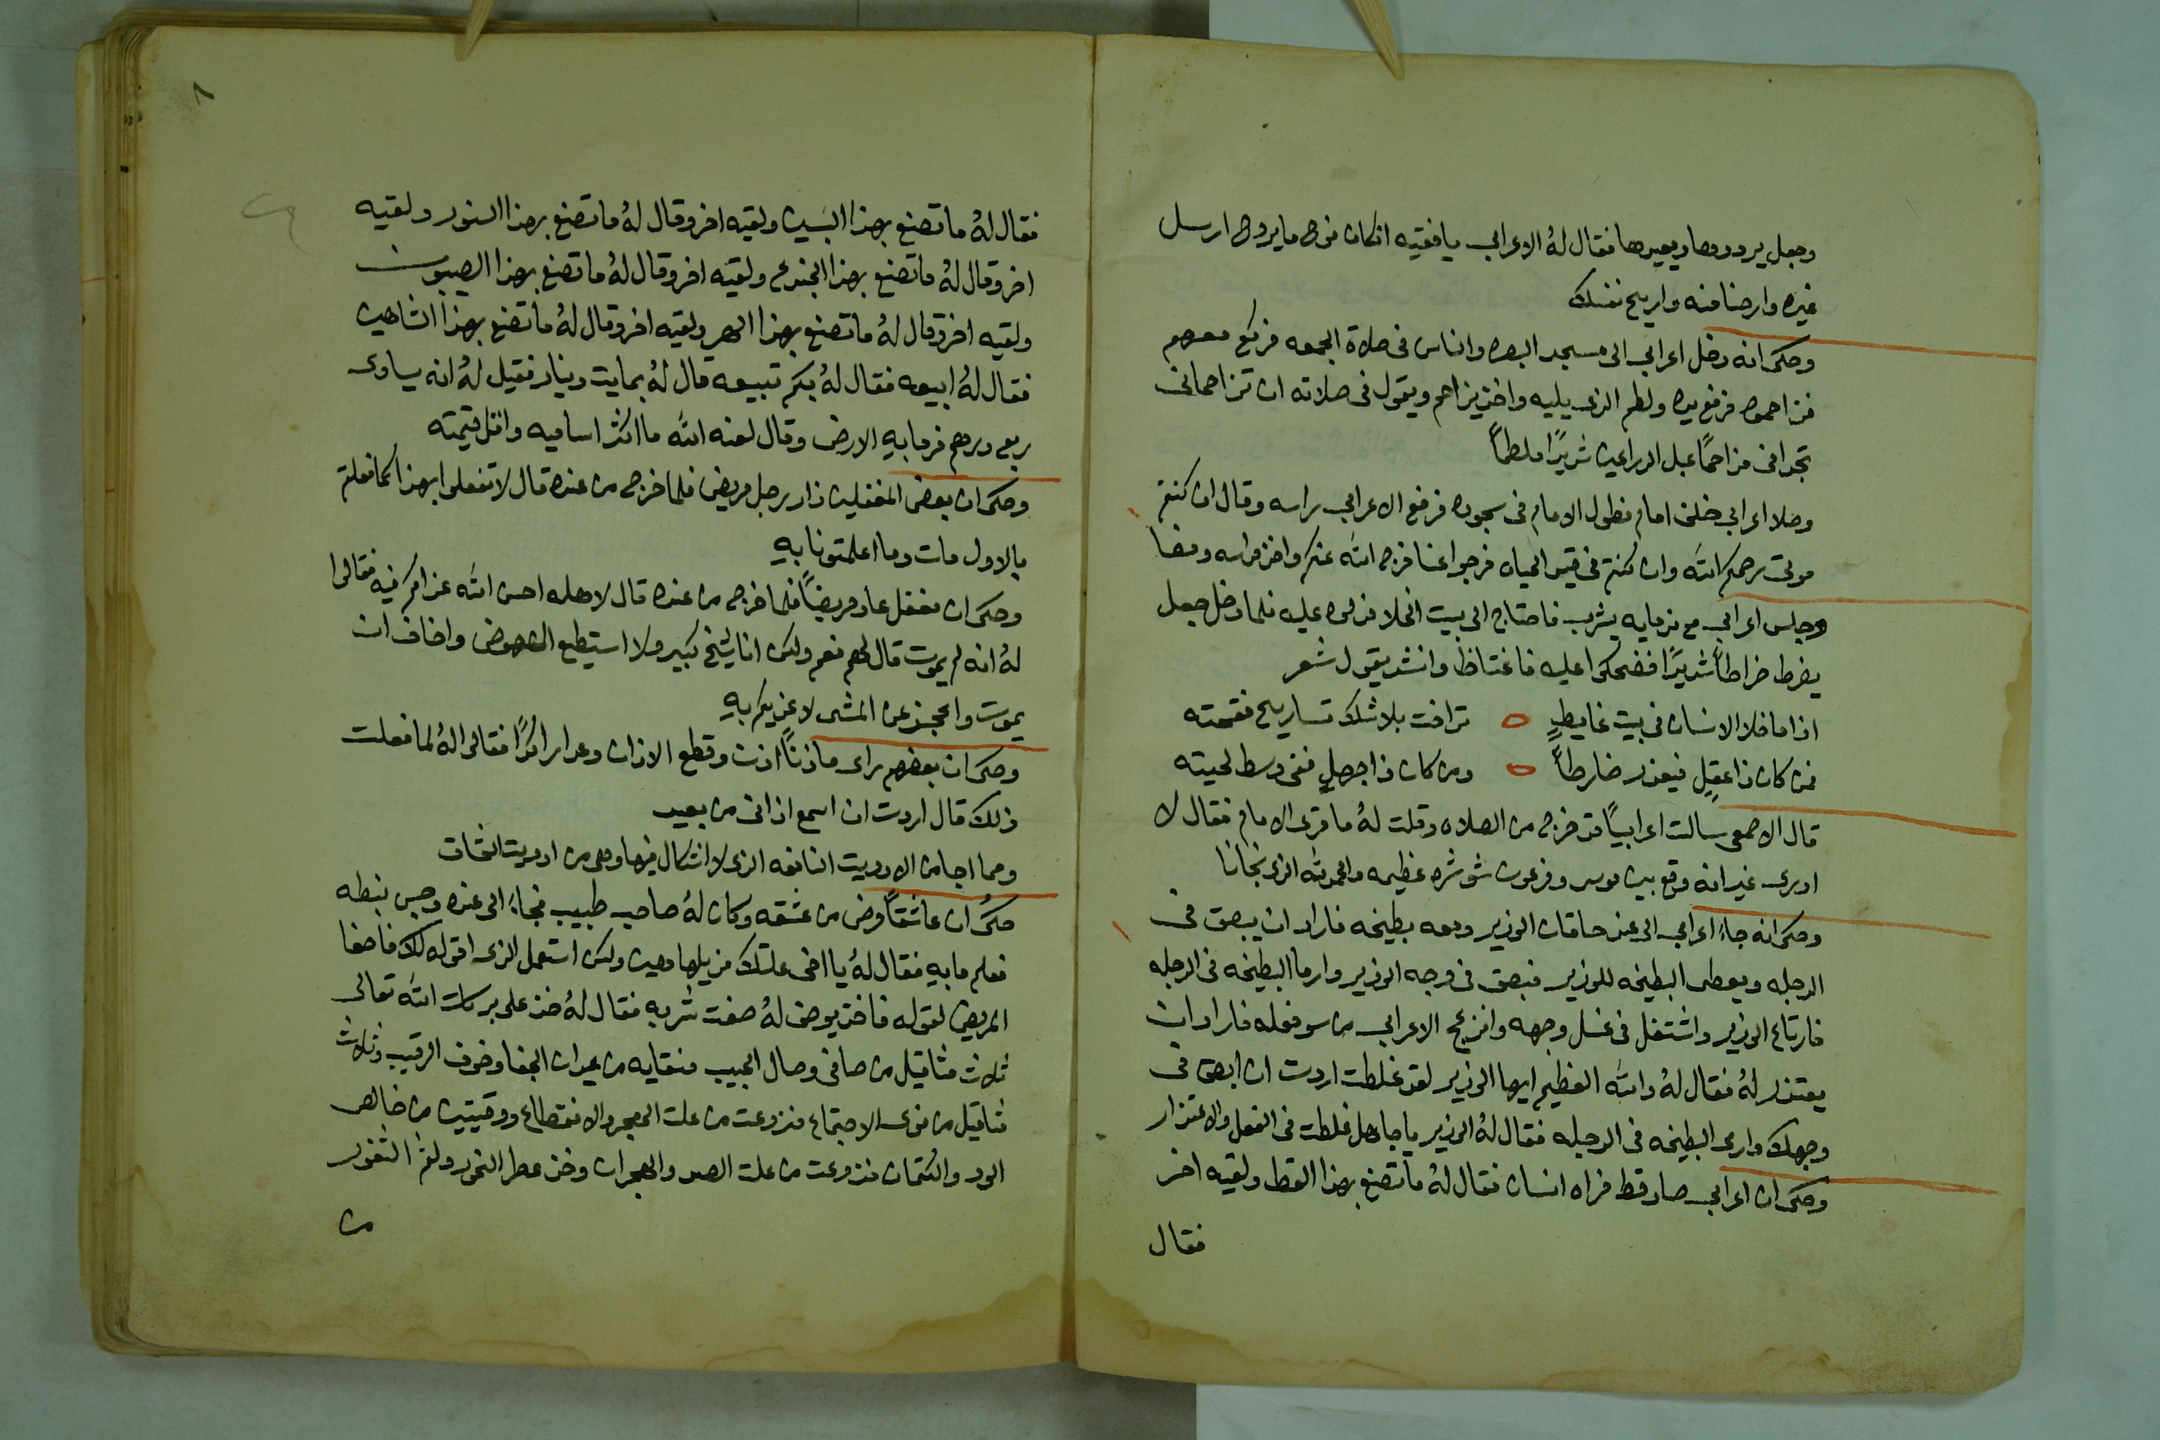 وجعل يرددها ويعيدها فقال لهُ الاعرابي يا فقيه انكان نوح ما يروح ارسل
غيره وارحنا منه واريح نفسك
وحكى انه دخل اعرابي الى مسجد البصره والناس فى صلاة الجمعه فركع معهم
فزاحموه فرفع يده ولطم الذى يليه واخذ يزاحم ويقول فى صلاته ان تزاحمانى
تجدانى مزاحمًا عبل الدراعين شديدًا ملطمًا
وصلا اعرابي خلف امام فطول الامام فى سجوده فرفع الاعرابي راسه وقال ان كنتم
موتى رحمكم الله وان كنتم فى قيد الحياه فرجوا عنا فرج الله عنكم واخذ فراسه ومضا
وجلس اعرابي مع ندمايه يشرب فاحتاج الى بيت الخلا فدلوه عليه فلما دخل جعل
يضرط ضراطاً شديدًا فضحكوا عليه فاغتاظ وانشد يقول شعر
اذا ما خلا الانسان فى بيت غايطٍ ○ تراخت بلا شك تساريح فقحته
فمن كان ذا عقلٍ فيعذر ضارطاً ○ ومن كان ذا جهلٍ ففى وسط لحيته
قال الاصمعى سالت اعرابيًا قد خرج من الصلاه وقلت لهُ ما قرى الامام فقال لا
ادرى غير انه وقع بين موسى وفرعون شوشره عظيمه والحمدلله الذى نجانا
وحكى انه جاءَ اعرابي الى عند حاقان الوزير ومعه بطيخه فاراد ان يبصق فى
الدجله ويعطى البطيخه للوزير فبصق فى وجه الوزير وارما البطيخه فى الدجله
فارتاع الوزير واشتغل فى غسل وجهه وانزعج الاعرابي من سو فعله فاراد ان
يعتذر لهُ فقال لهُ والله العظيم ايها الوزير لقد غلطت اردت ان ابصق فى
وجهك وارمى البطيخه فى الدجله فقال لهُ الوزير يا جاهل غلطت فى الفعل والاعتذار
وحكى ان اعرابي صاد قط فراه انسان فقال لهُ ما تصنع بهذا القط ولقيه اخر
فقال
٨
فقال لهُ ما تصنع بهذا البسين ولقيه اخر وقال لهُ ما تصنع بهذا السنور ولقيه
اخر وقال لهُ ما تصنع بهذا الجندع ولقيه اخر وقال لهُ ما تصنع بهذا الضيون
ولقيه اخر وقال لهُ ما تصنع بهذا الهر ولقيه اخر وقال لهُ ما تصنع بهذا الشاهين
فقال لهُ ابيعه فقال لهُ بكم تبيعه قال لهُ بمايت دينار فقيل لهُ انه يساوى
ربع درهم فرما به الارض وقال لعنه الله ما اكثر اساميه واقل قيمته
وحكى ان بعض المغفلين زار رجل مريض فلما خرج من عنده قال لا تفعلوا بهذا كما فعلتم
بالاول مات وما اعلمتونا بهِ
وحكى ان مغفل عاد مريضاً فلما خرج من عنده قال لاهله احسن الله عزاكم فيه فقالوا
لهُ انه لم يموت قال لهم نعم ولكن انا شيخ كبير ولا استطيع النهوض واخاف ان
يموت واعجز عن المشى لاعزيكم بهِ
وحكى ان بعضهم راى ماذنًا اذن وقطع الاذان وعدا راكدًا فقالوا لهُ لما فعلت
ذلك قال اردت ان اسمع اذانى من بعيد
ومما اجا من الادويت النافعه الذى لا اشكال فيها وهى من ادويت الثقات
حكىُ ان عاشقًا مرض من عشقه وكان لهُ صاحب طبيب فجاءَ الى عنده وجس نبطه
فعلم ما به فقال لهُ يا اخى علتك مزيلها هين ولكن استعمل الذى اقوله لك فاصغا
المريض لقوله فاخذ يوصف لهُ صفت شربه فقال لهُ خذ على بركات الله تعالى
ثلاث مثاقيل من صافى وصال الحبيب منقايه من عيدان الجفا وخوف الرقيب وثلاث
مثاقيل من نوى الاجتماع منزوعت من علت الهجر والانقطاع ووقيتين من خالص
الود والكتمان منزوعت من علت الصد والهجران وخذ عطر النحور ولثم الثغور
من